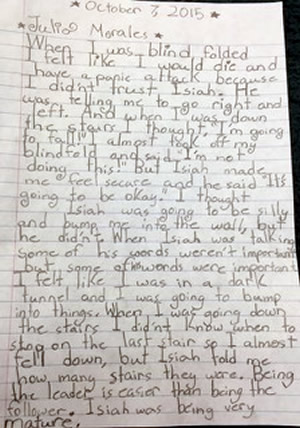 ★ October 7, 2015 ★
★Julio Morales ★
When I was blind folded
I felt like I would die and
have a panic attack because
I didn't trust Isiah. He
was telling me to go right and
left. And when I was down
the stairs I thought, "I'm going
to fall!" I almost took off my
blindfold and said "I'm not
doing this!" But Isiah made
me feel secare and he said "It's
going to be okay. I thought
Isiah was going to be silly
and bump me into the wall, but
he didn't. When Isiah was talking
some of his words weren't important
but some of words were important
I felt like I was in a dark
tunnel and I was going to bump
into things. When I was going down
the stairs I didn't know when to
stop on the last stair so I almost
fell down, but Isiah told me
how many stairs they were. Being
the leader is easier than being the
follower. Isiah was being very
mature.